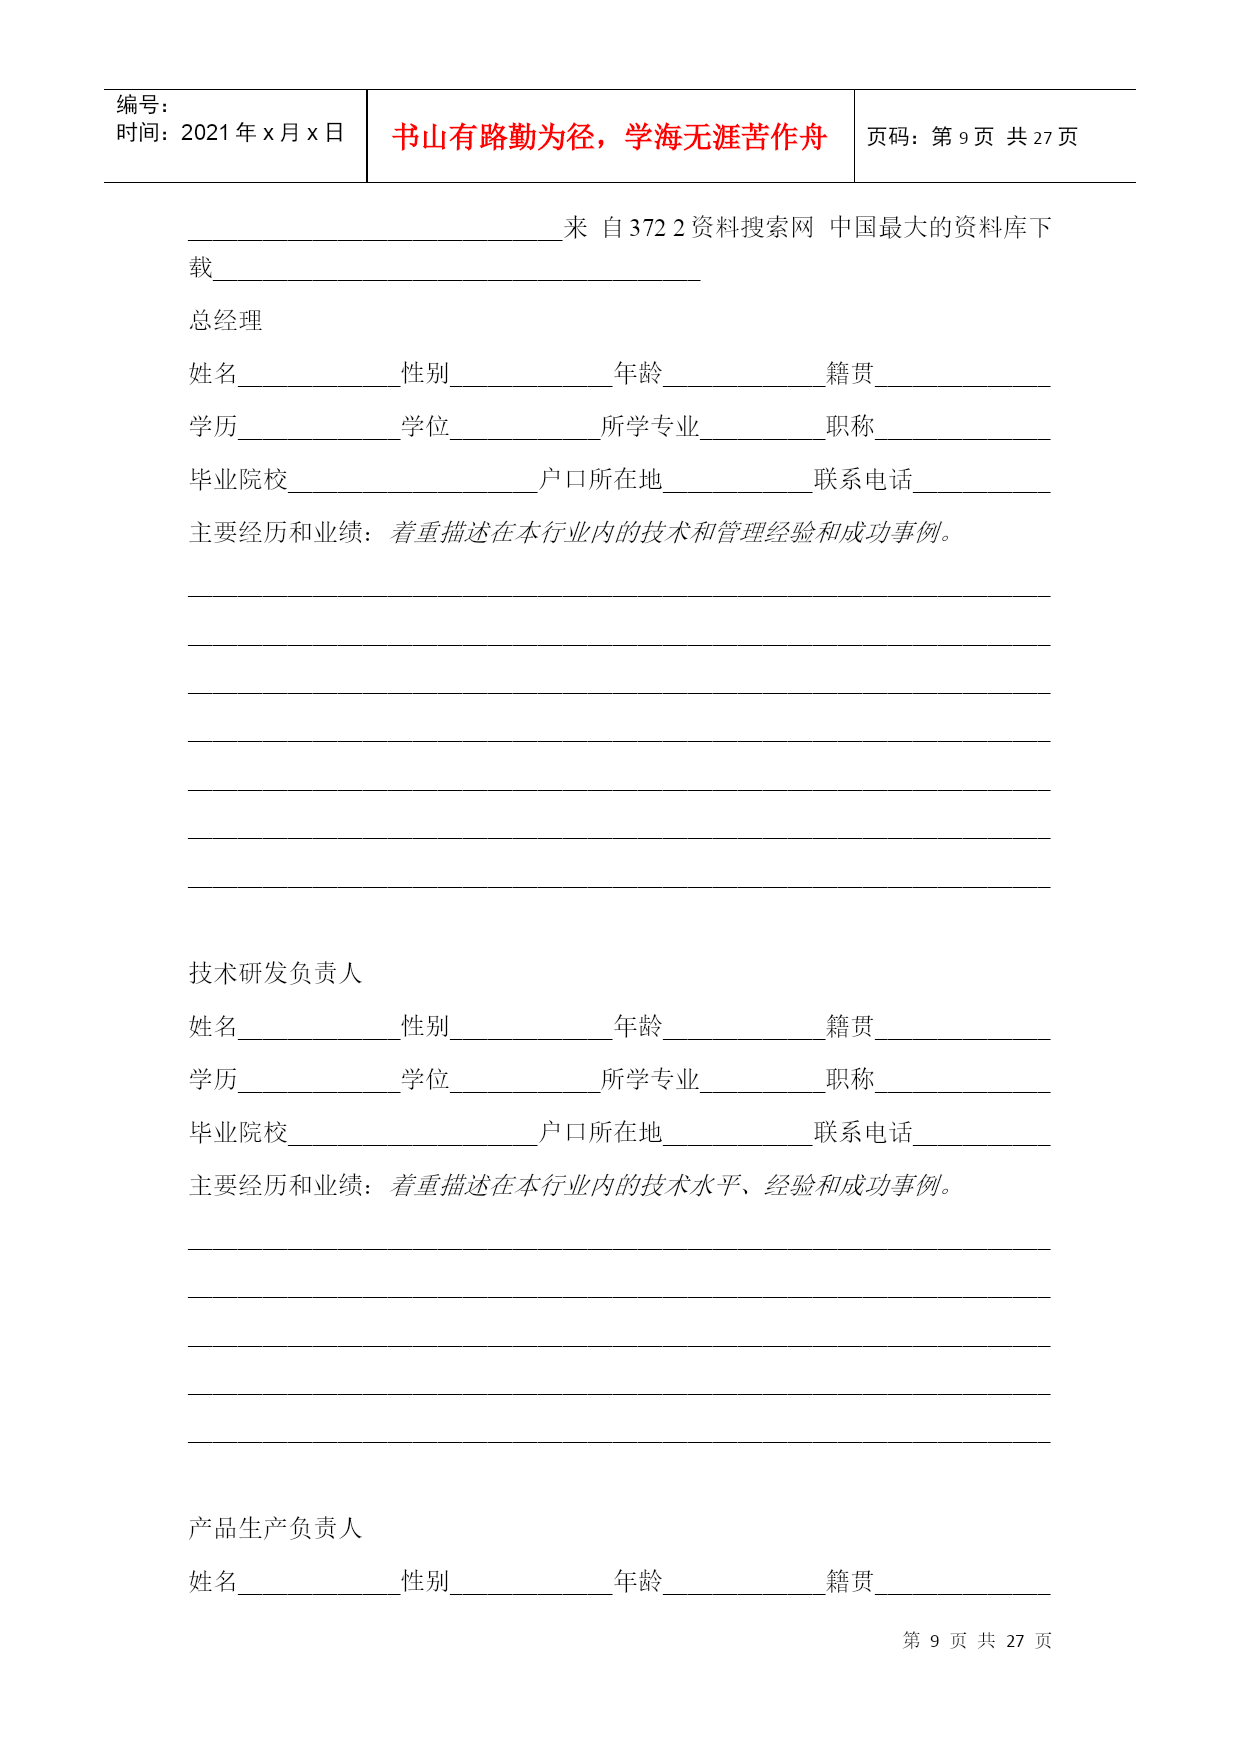 编号：
时间：2021年x月x日
书山有路勤为径，学海无涯苦作舟
页码：第9页 共27页
______________________________来 自 372 2 资料搜索网 中国最大的资料库下
载_______________________________________
总经理
姓名_____________性别_____________年龄_____________籍贯______________
学历_____________学位____________所学专业__________职称______________
毕业院校____________________户口所在地____________联系电话___________
主要经历和业绩：着重描述在本行业内的技术和管理经验和成功事例。
_____________________________________________________________________
_____________________________________________________________________
_____________________________________________________________________
_____________________________________________________________________
_____________________________________________________________________
_____________________________________________________________________
_____________________________________________________________________
技术研发负责人
姓名_____________性别_____________年龄_____________籍贯______________
学历_____________学位____________所学专业__________职称______________
毕业院校____________________户口所在地____________联系电话___________
主要经历和业绩：着重描述在本行业内的技术水平、经验和成功事例。
_____________________________________________________________________
_____________________________________________________________________
_____________________________________________________________________
_____________________________________________________________________
_____________________________________________________________________
产品生产负责人
姓名_____________性别_____________年龄_____________籍贯______________
第 9 页 共 27 页